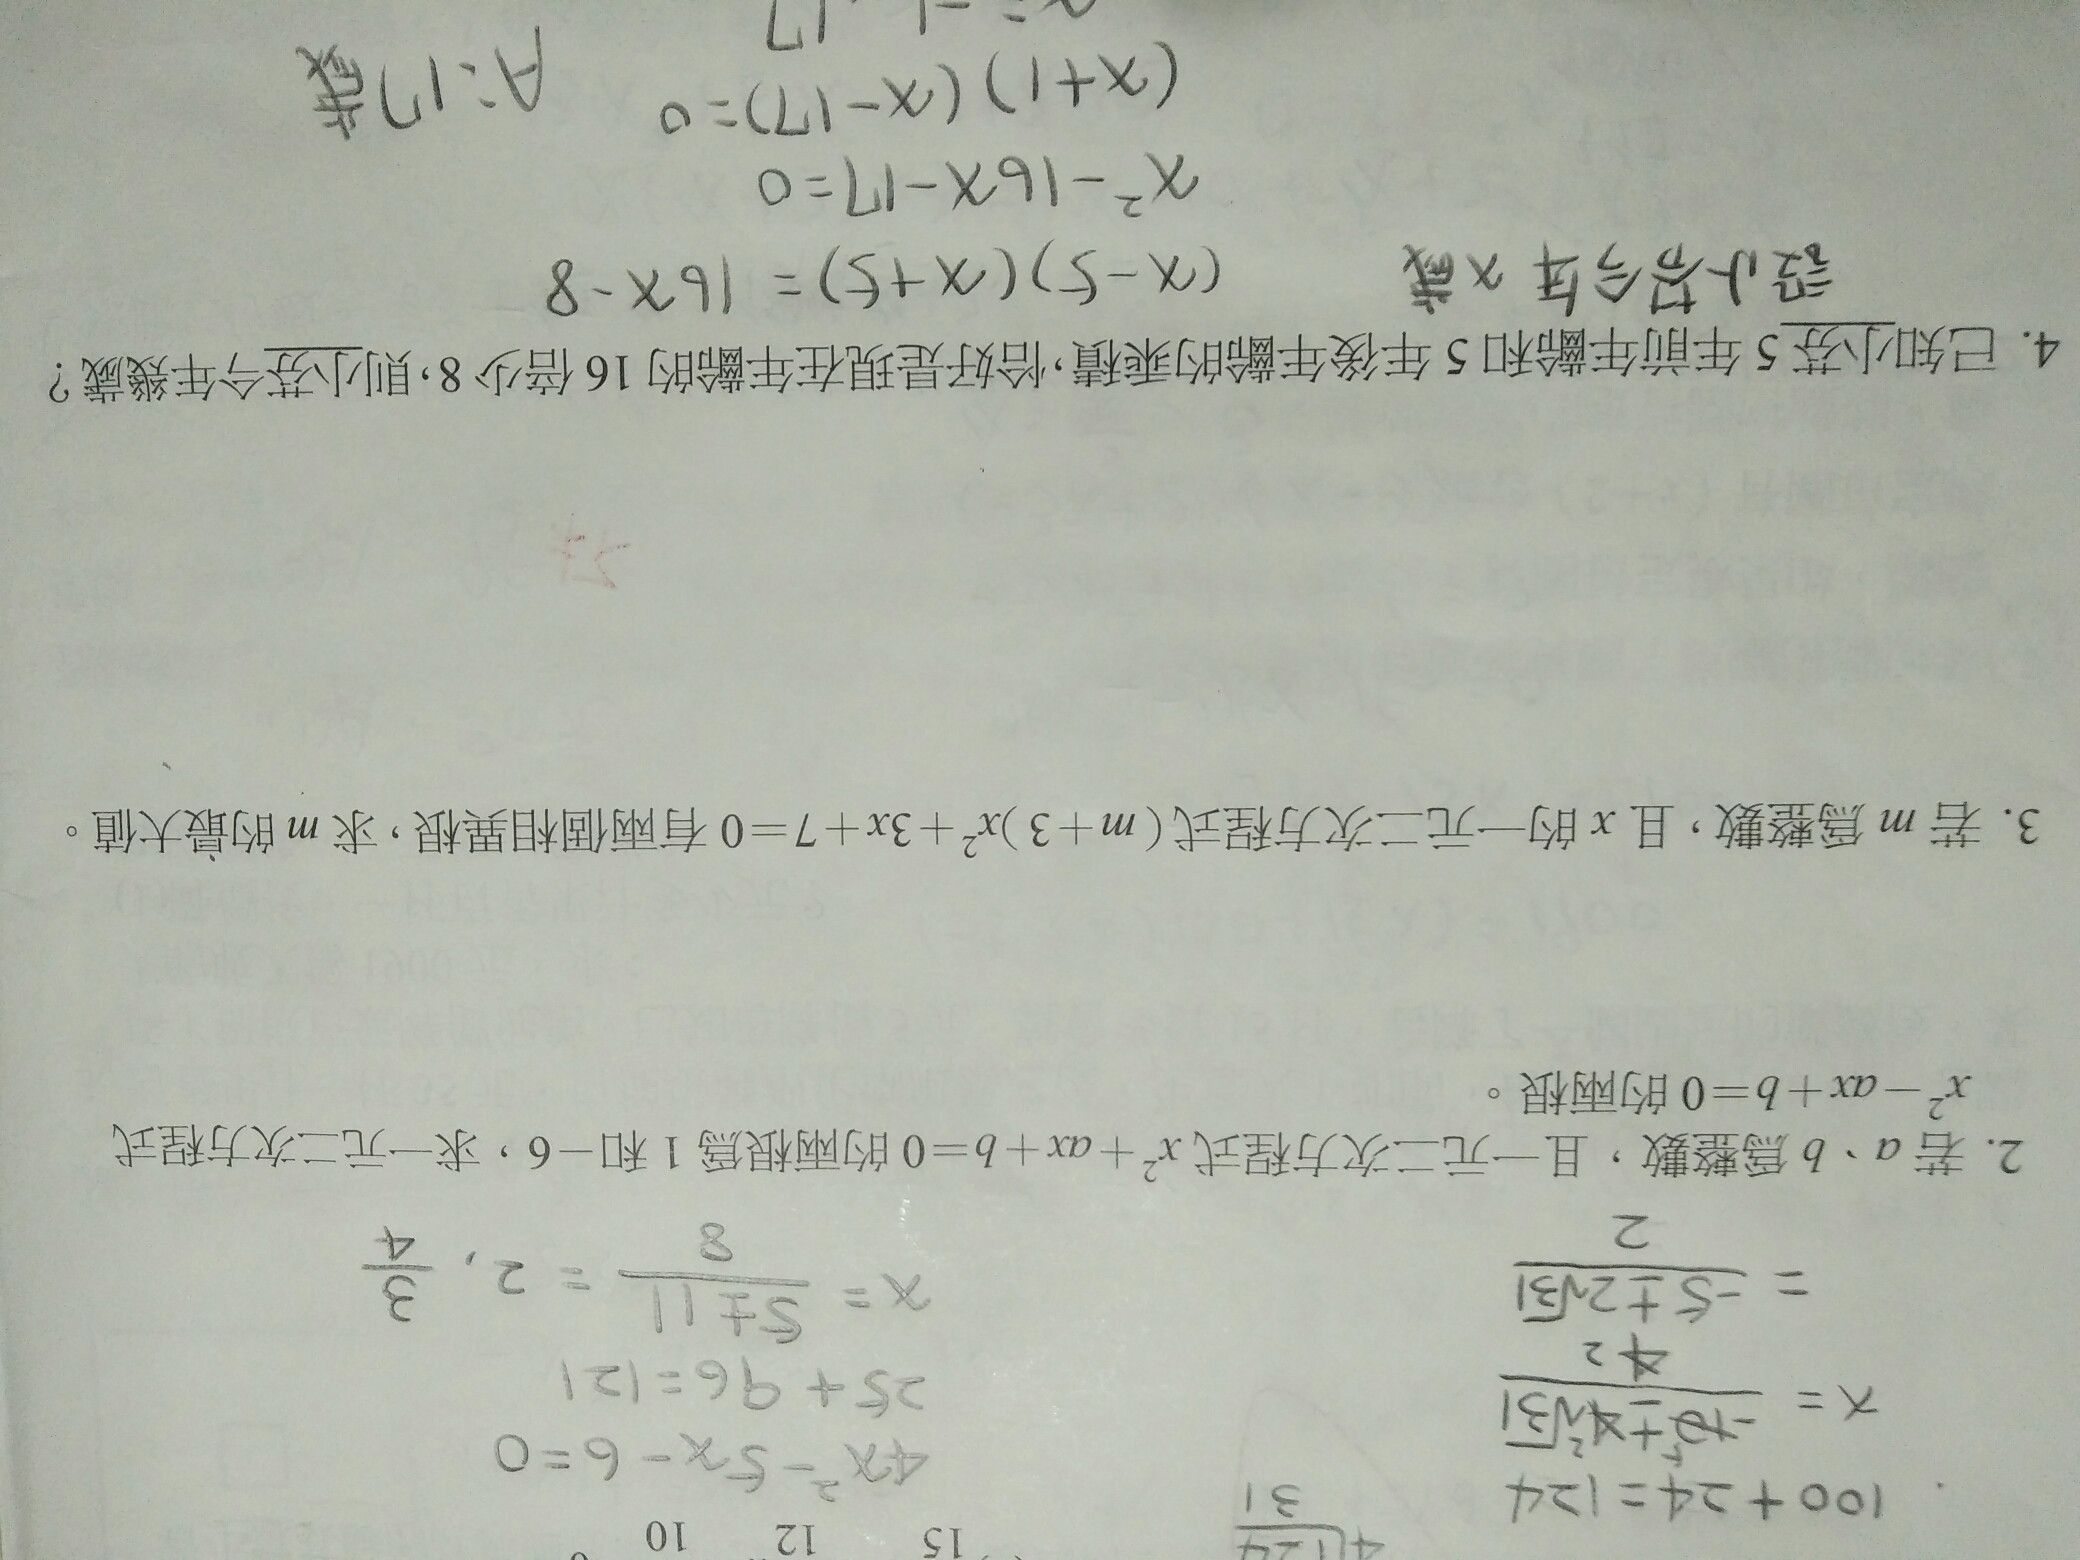 15 12 10
100+24=124
4√124
31
x = -10±4√31 / 4
5 2 2
= -5±2√31 / 2
4x²-5x-6=0
25+96=121
x = 5±11 / 8 = 2, 3/4
2. 若 a、b 為整數，且一元二次方程式 x²+ax+b=0 的兩根為 1 和-6，求一元二次方程式
x²-ax+b=0 的兩根。
3. 若 m 為整數，且 x 的一元二次方程式(m+3)x²+3x+7=0 有兩個相異根，求 m 的最大值。
4. 已知小芬 5 年前年齡和 5 年後年齡的乘積，恰好是現在年齡的 16 倍少 8，則小芬今年幾歲？
設小芬今年 x 歲
(x-5)(x+5) = 16x-8
x²-16x-17=0
(x+1)(x-17)=0
A:17歲
x=-1,17